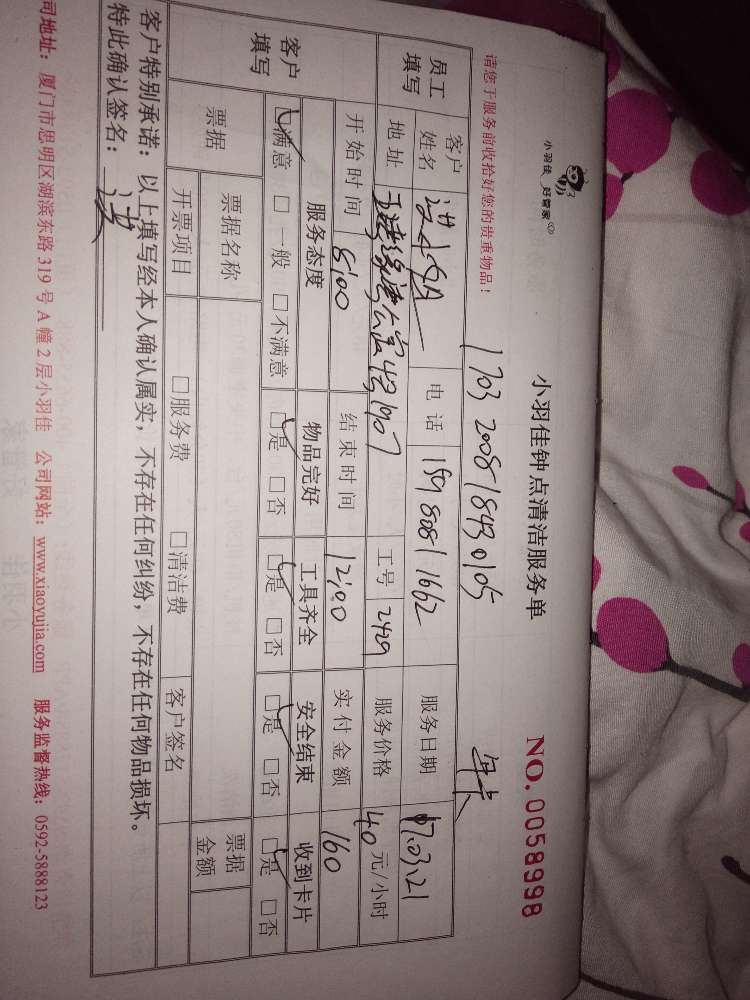 小羽佳 好管家
小羽佳钟点清洁服务单
NO. 0058998
请您于服务前收拾好您的贵重物品!
1703 2008 1843 0105
年卡
员工填写 客户姓名 电话 159 8081 1662 服务日期 17.03.21
地址 4号1907 工号 2429 服务价格 40 元/小时
开始时间 8:00 结束时间 12:00 实付金额 160
客户填写 服务态度 物品完好 工具齐全 安全结束 收到卡片
□满意 □一般 □不满意 □是 □否 □是 □否 □是 □否 □是 □否
票据 票据名称 票据金额
开票项目 □服务费 □清洁费 客户签名
客户特别承诺:以上填写经本人确认属实,不存在任何纠纷,不存在任何物品损坏。
特此确认签名:
司地址:厦门市思明区湖滨东路 319 号 A 幢 2 层小羽佳 公司网站:www.xiaoyujia.com 服务监督热线:0592-5888123